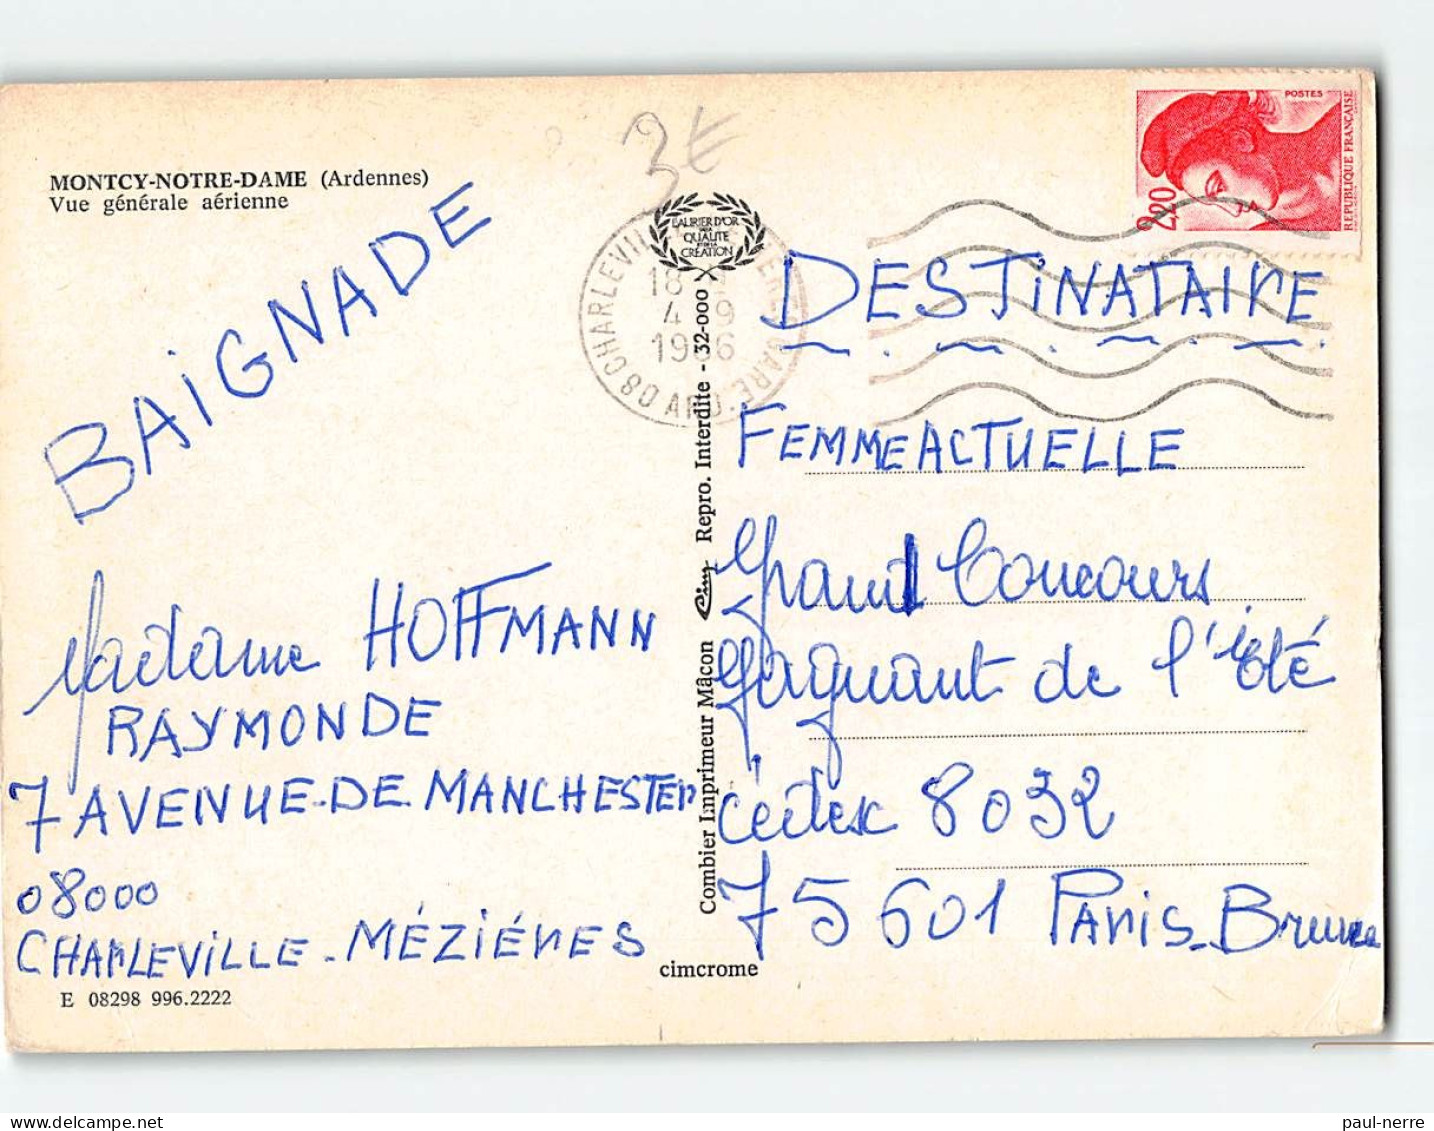 3€
MONTCY-NOTRE-DAME (Ardennes)
Vue générale aérienne
BAiGNADE
Madame HOFFMANN
RAYMONDE
7 AVENUE-DE MANCHESTER
08000
CHARLEViLLE-MÉZiÉRES
E 08298 996.2222
LAURIER D'OR
DE LA
QUALITÉ
ET DE LA
CRÉATION
18
4 9
1986
08 CHARLEVILLE GARE ARD.
Combier Imprimeur Mâcon Cim Repro. Interdite - 32-000
cimcrome
POSTES
REPUBLIQUE FRANÇAISE
2,20
DESTiNATAiRE
FEMME ACTUELLE
Grand Concours
Gagnant de l'Eté
Cédex 8032
75601 PARiS-Brune
paul-nerre